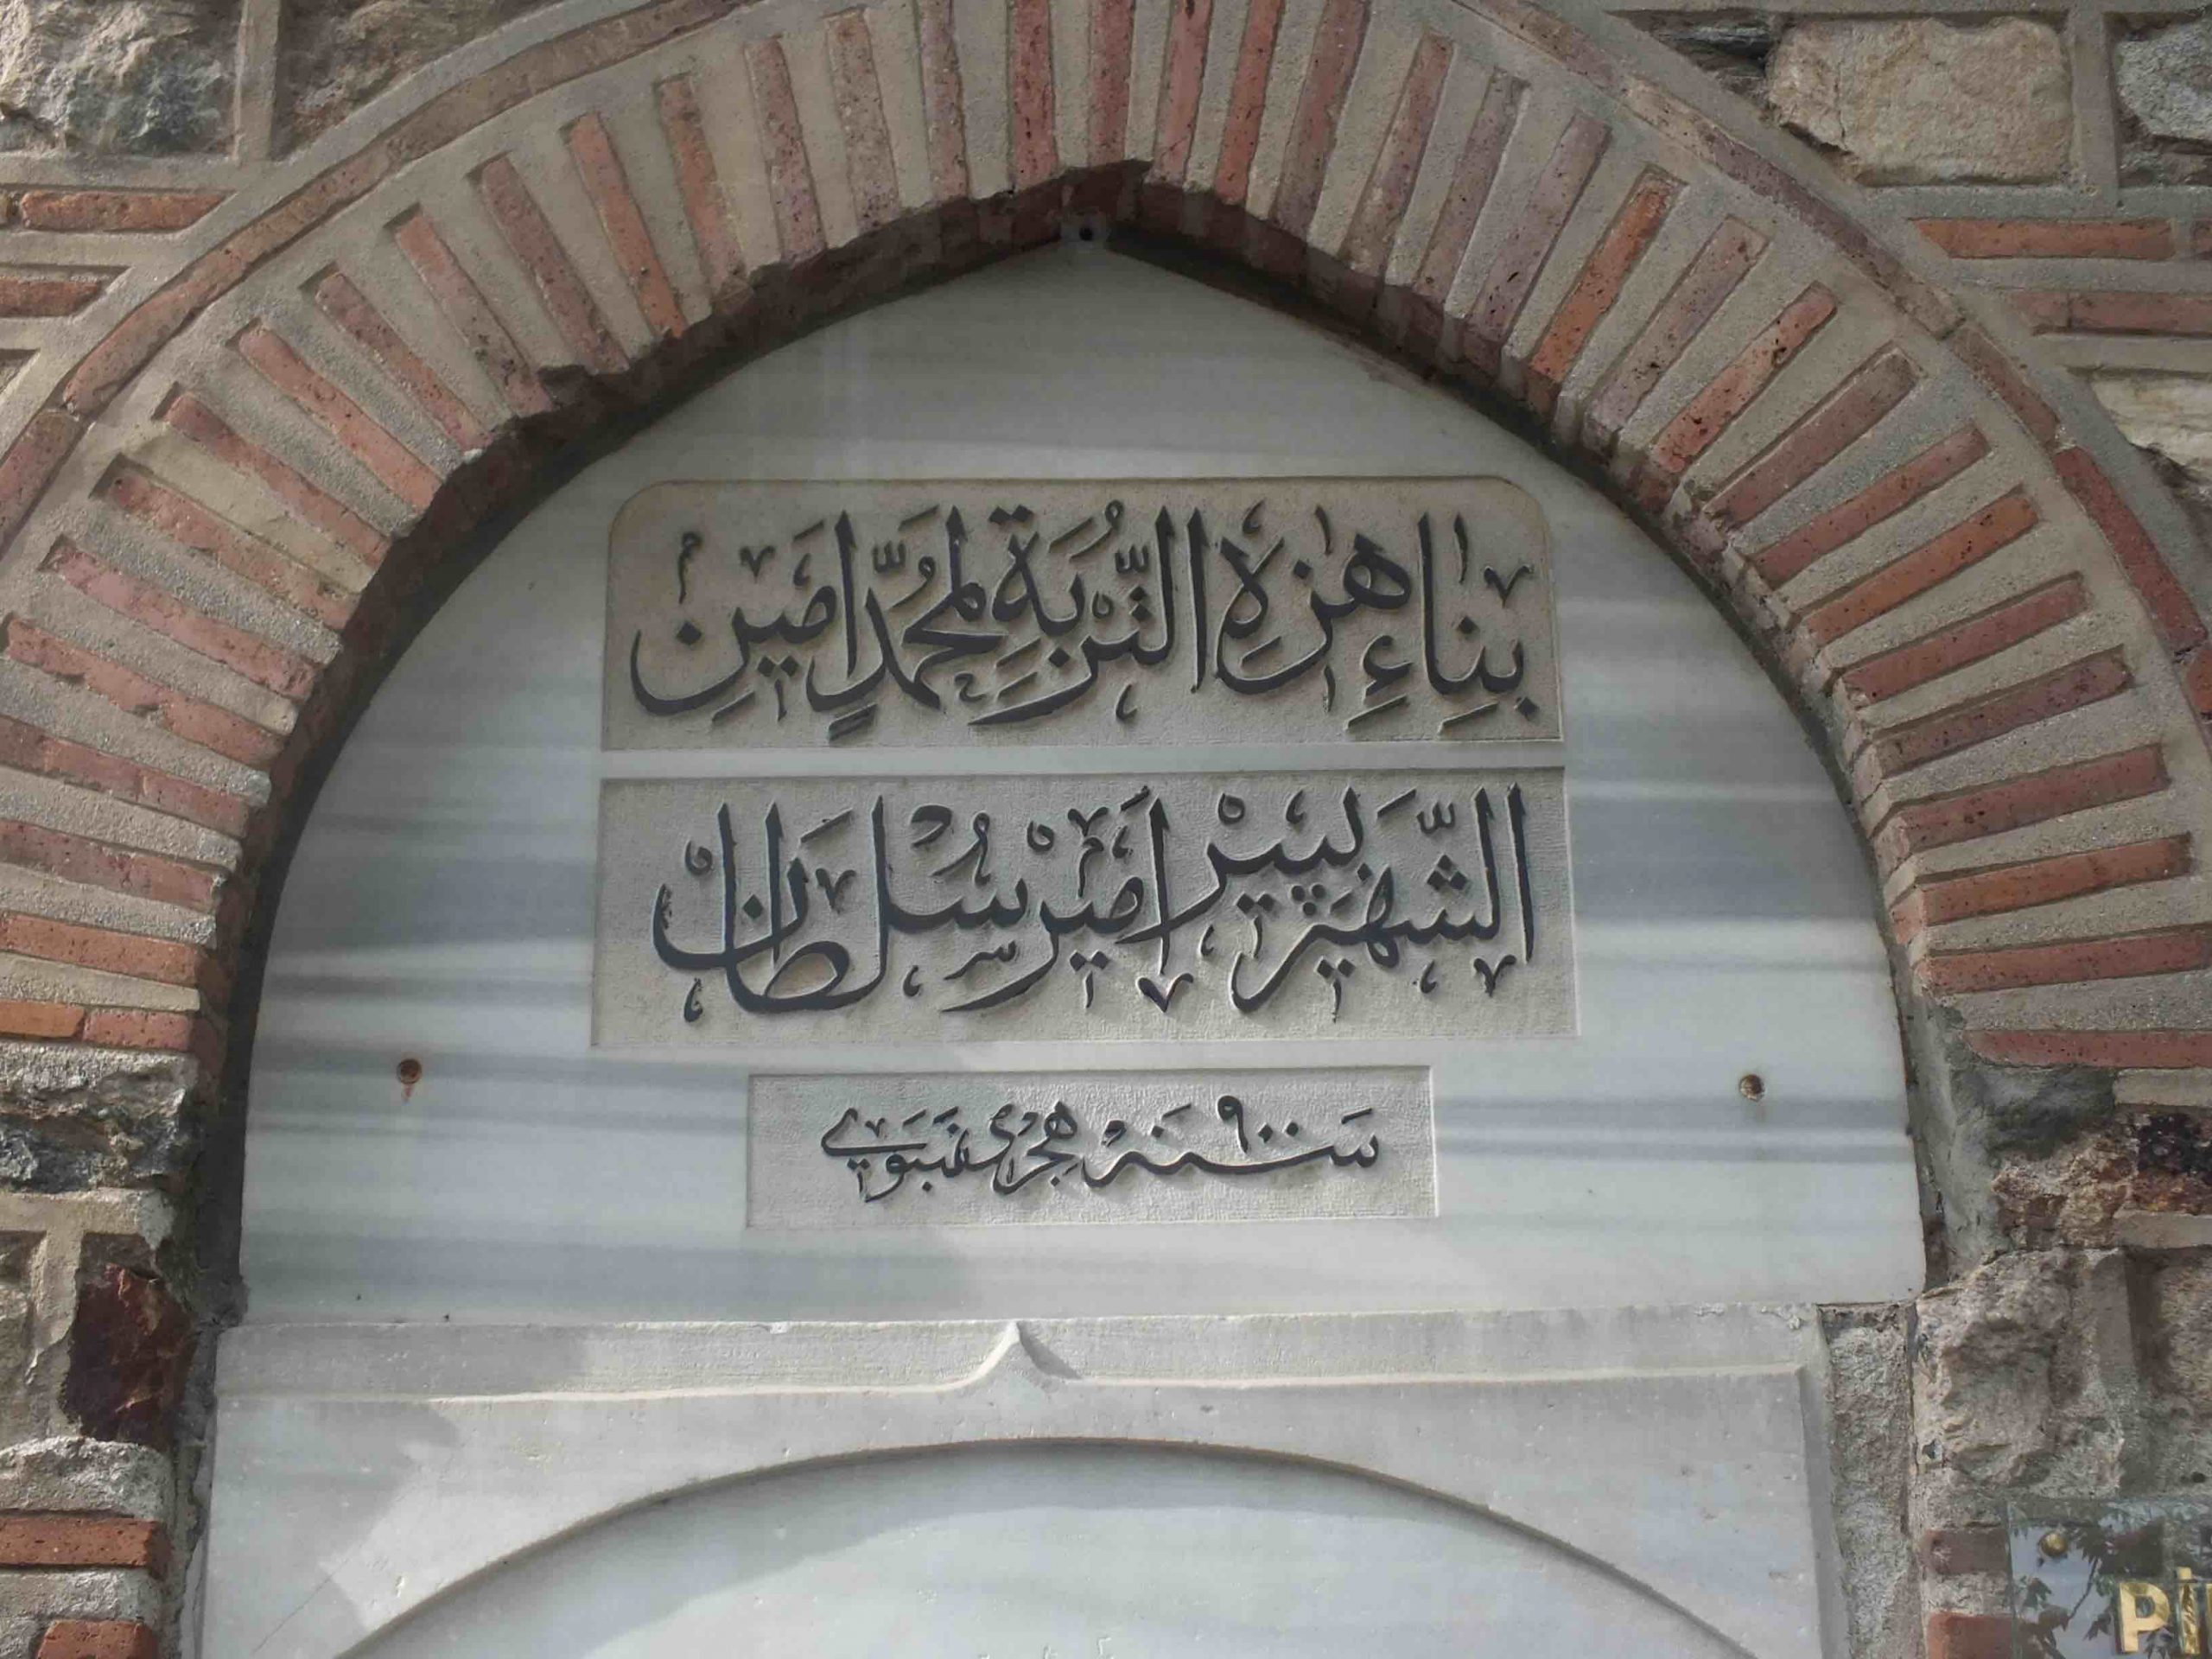 بِنَاءِ هٰذِهِ التُّرْبَةِ لِمُحَمَّدٍ اَمِينِ
الشَّهِيرْ بَپِيرْ اَمِيرْ سُلْطَانْ
سَنَه ٩٠٠ هِجْرِیْ نَبَوِي
Pİ